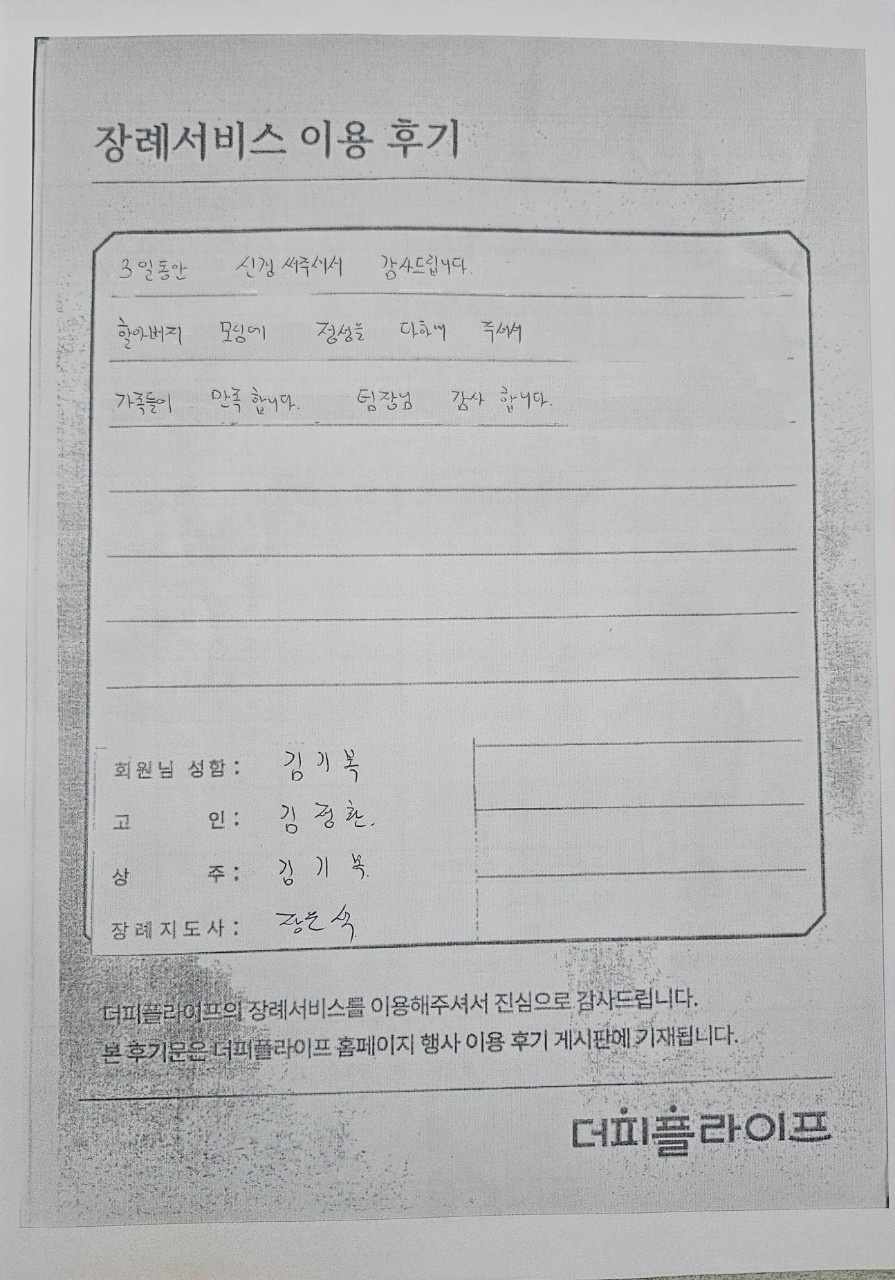 장례서비스 이용 후기
3일동안 신경 써주셔서 감사드립니다.
할아버지 모심에 정성을 다하여 주셔서
가족들이 만족합니다. 팀장님 감사 합니다.
회원님 성함 : 김기복
고 인 : 김정환.
상 주 : 김기복.
장례지도사 : 장문석
더피플라이프의 장례서비스를 이용해주셔서 진심으로 감사드립니다.
본 후기문은 더피플라이프 홈페이지 행사 이용 후기 게시판에 기재됩니다.
더피플라이프